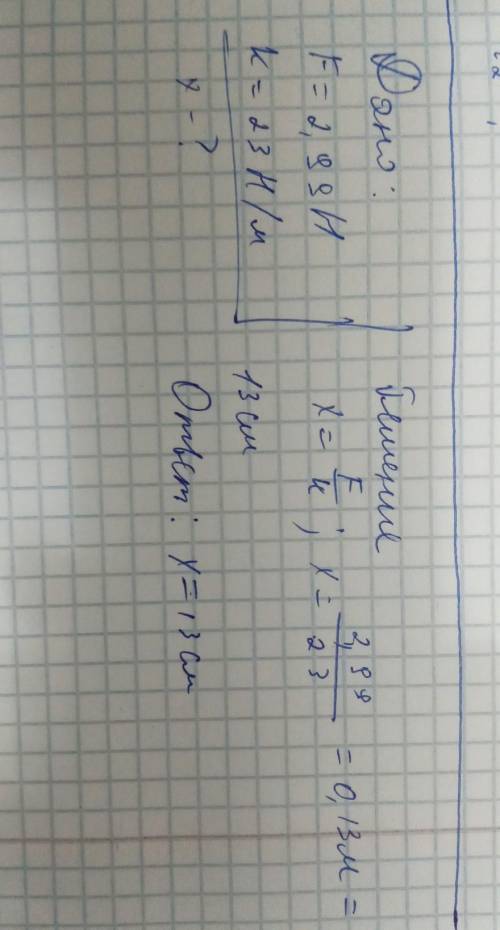 Дано:
F = 2,99 Н
k = 23 Н/м
x - ?
Решение
x = F/k ; x = 2,99/23 = 0,13 м =
13 см
Ответ: x = 13 см